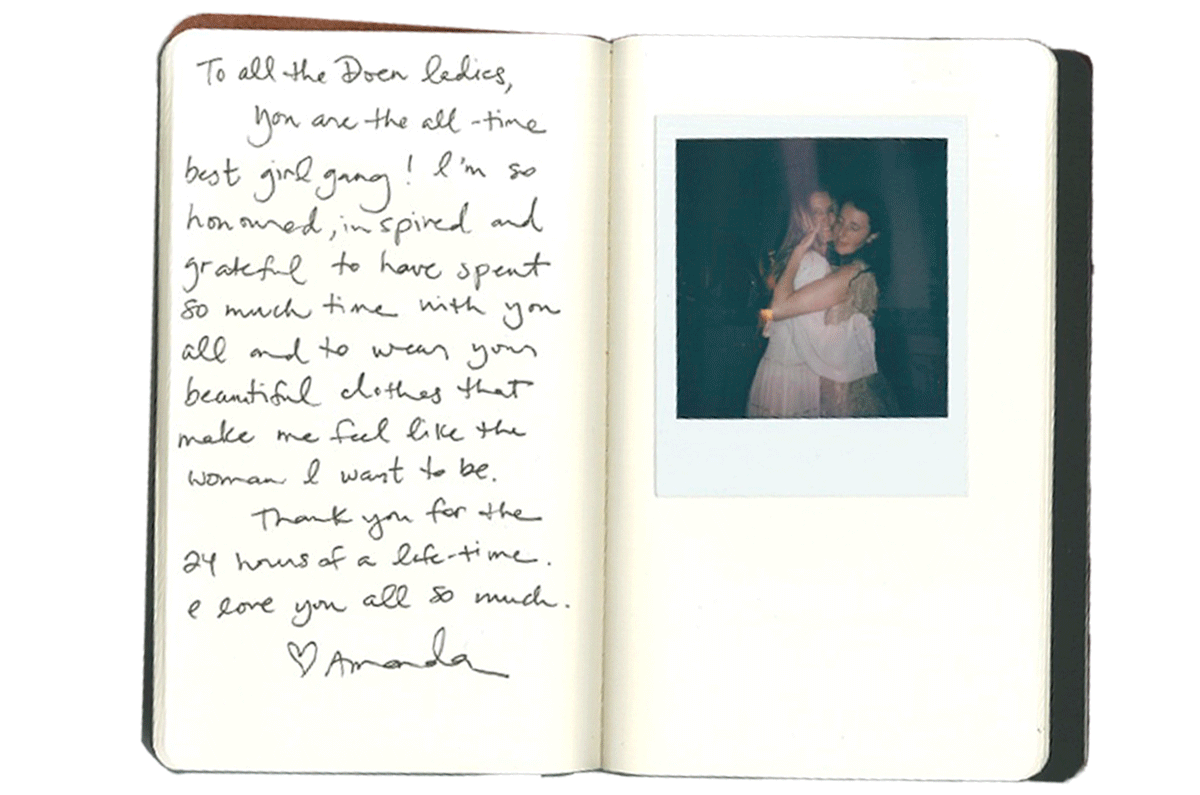 To all the Doen ladies,
You are the all-time
best girl gang! I'm so
honoured, inspired and
grateful to have spent
so much time with you
all and to wear your
beautiful clothes that
make me feel like the
woman I want to be.
Thank you for the
24 hours of a life-time.
I love you all so much.
♡ Amanda